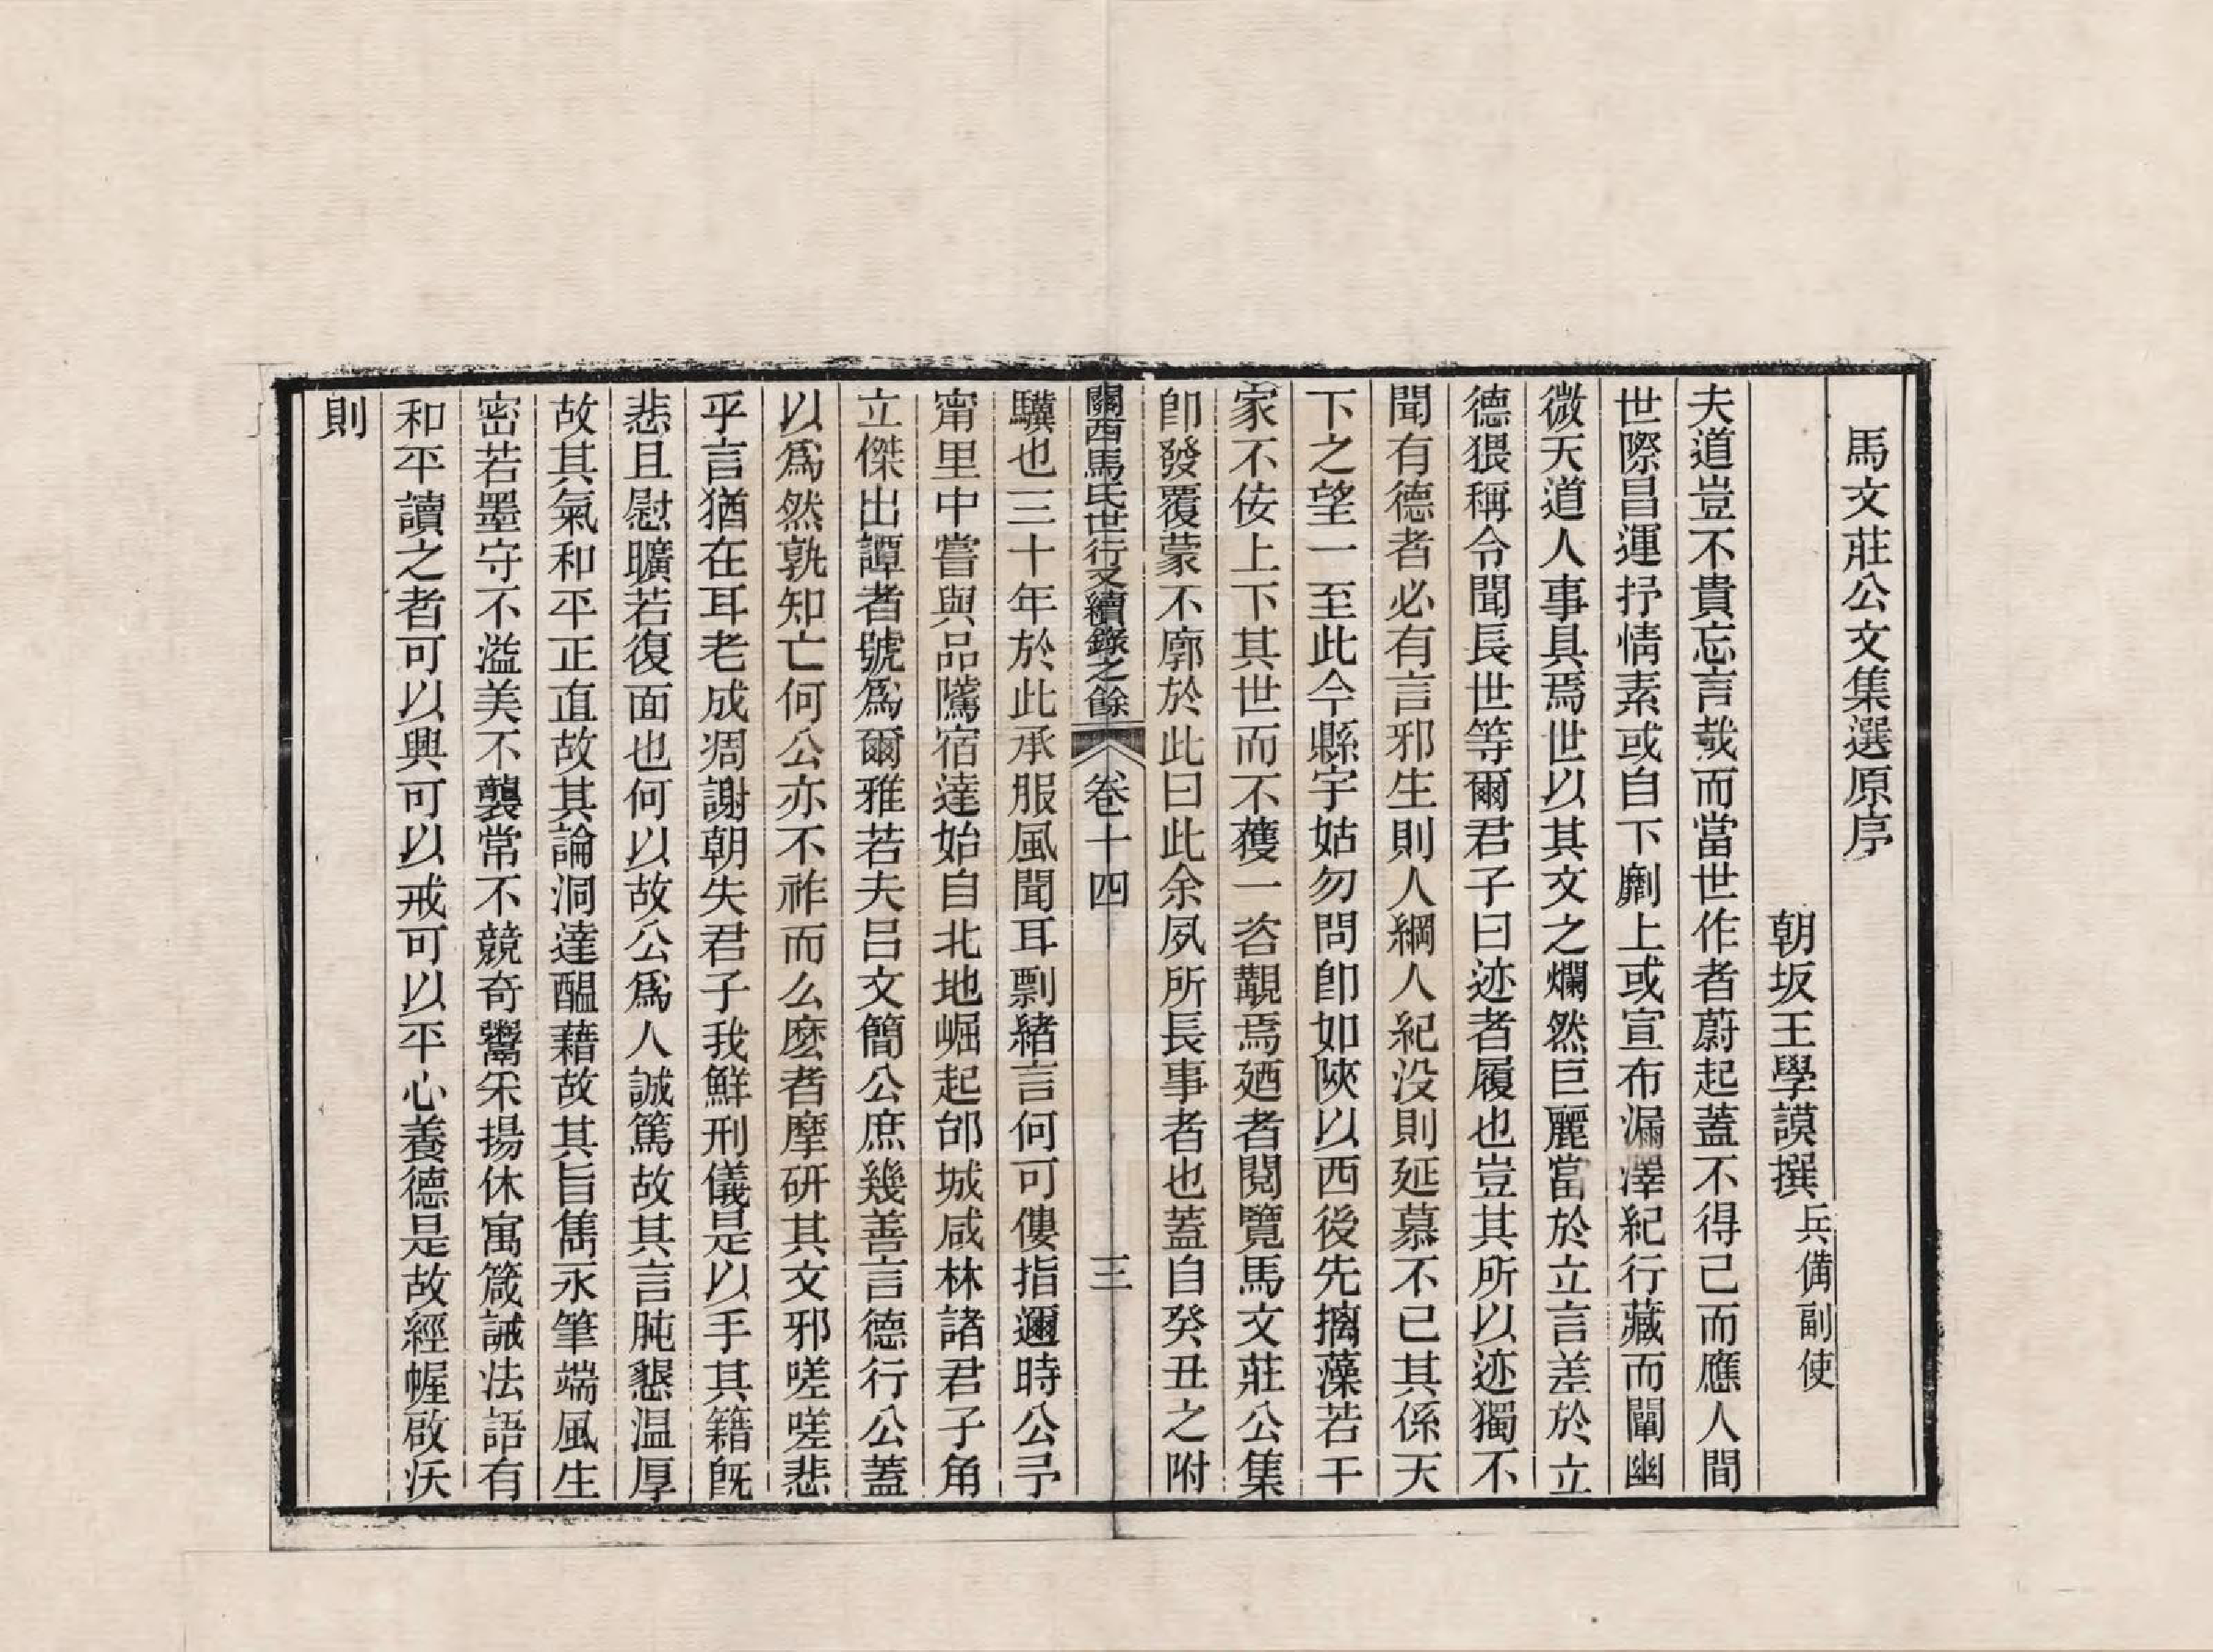 馬文莊公文集選原序
朝坂王學謨撰兵備副使
夫道豈不貴忘言哉而當世作者蔚起蓋不得已而應人間
世際昌運抒情素或自下劘上或宣布漏澤紀行藏而闡幽
微天道人事具焉世以其文之爛然巨麗當於立言差於立
德猥稱令聞長世等爾君子曰迹者履也豈其所以迹獨不
聞有德者必有言邪生則人綱人紀没則延慕不已其係天
下之望一至此今縣宇姑勿問卽如陝以西後先摛藻若干
家不佞上下其世而不獲一咨覯焉廼者閱覽馬文莊公集
卽發覆蒙不廓於此曰此余夙所長事者也蓋自癸丑之附
關西馬氏世行文續錄之餘 卷十四 三
驥也三十年於此承服風聞耳剽緒言何可僂指邇時公予
甯里中嘗與品隲宿達始自北地崛起邰城咸林諸君子角
立傑出譚者號爲爾雅若夫呂文簡公庶幾善言德行公蓋
以爲然孰知亡何公亦不祚而么麽者摩研其文邪嗟嗟悲
乎言猶在耳老成凋謝朝失君子我鮮刑儀是以手其籍旣
悲且慰曠若復面也何以故公爲人誠篤故其言肫懇温厚
故其氣和平正直故其論洞達醞藉故其旨雋永筆端風生
密若墨守不溢美不襲常不競奇鬻采揚休寓箴誡法語有
和平讀之者可以興可以戒可以平心養德是故經幄啟沃
則